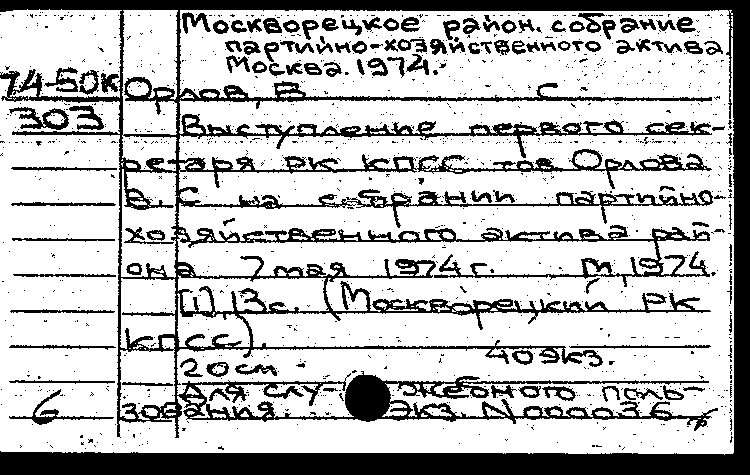 Москворецкое район. собрание
партийно-хозяйственного актива.
Москва. 1974.
74-50к Орлов, В С
303 Выступление первого сек-
ретаря РК КПСС тов Орлова
В. С на собрании партийно-
хозяйственного актива рай-
она 7 мая 1974 г. М, 1974.
[1], 13 с. (Москворецкий РК
КПСС).
20 см 40 экз.
Для слу- жебного поль-
6 зования. Экз. N 000036